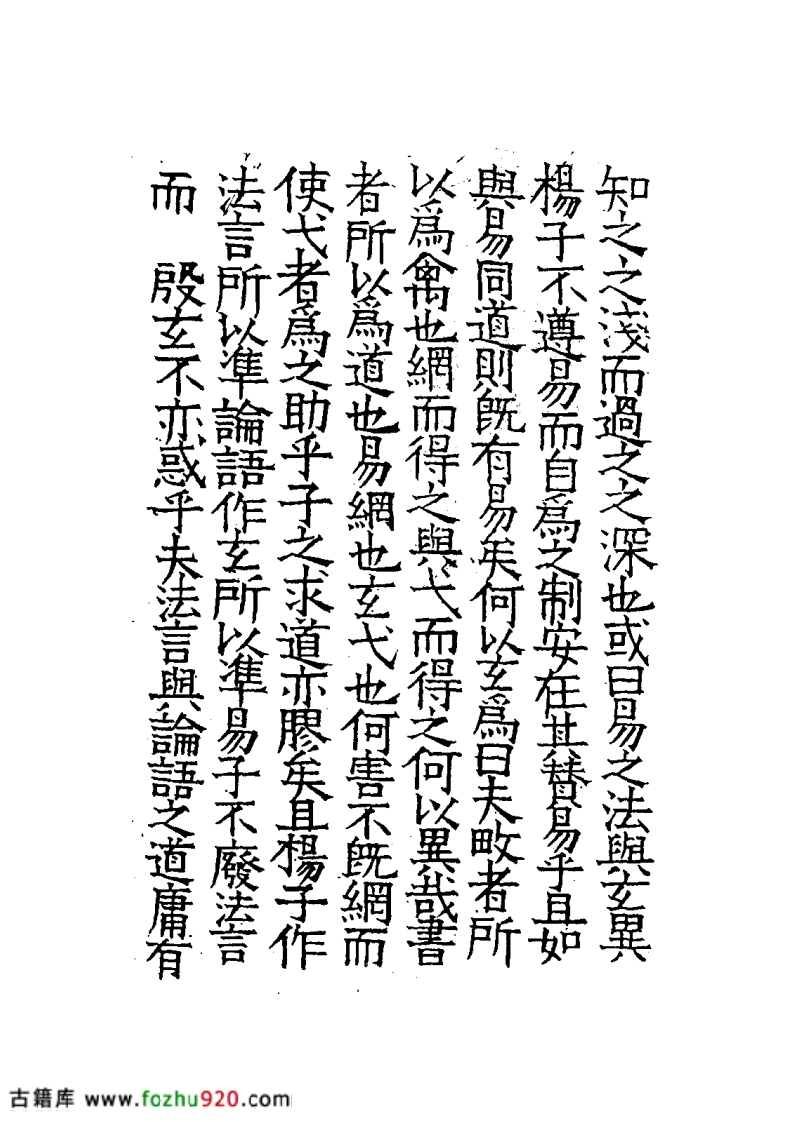 知之之淺而過之之深也或曰易之法與玄異
楊子不遵易而自爲之制安在其賛易乎且如
與易同道則旣有易矣何以玄爲曰夫畋者所
以爲禽也網而得之與弋而得之何以異哉書
者所以爲道也易網也玄弋也何害不旣網而
使弋者爲之助乎子之求道亦膠矣且楊子作
法言所以準論語作玄所以準易子不廢法言
而 殷玄不亦惑乎夫法言與論語之道庸有
古籍库 www.fozhu920.com